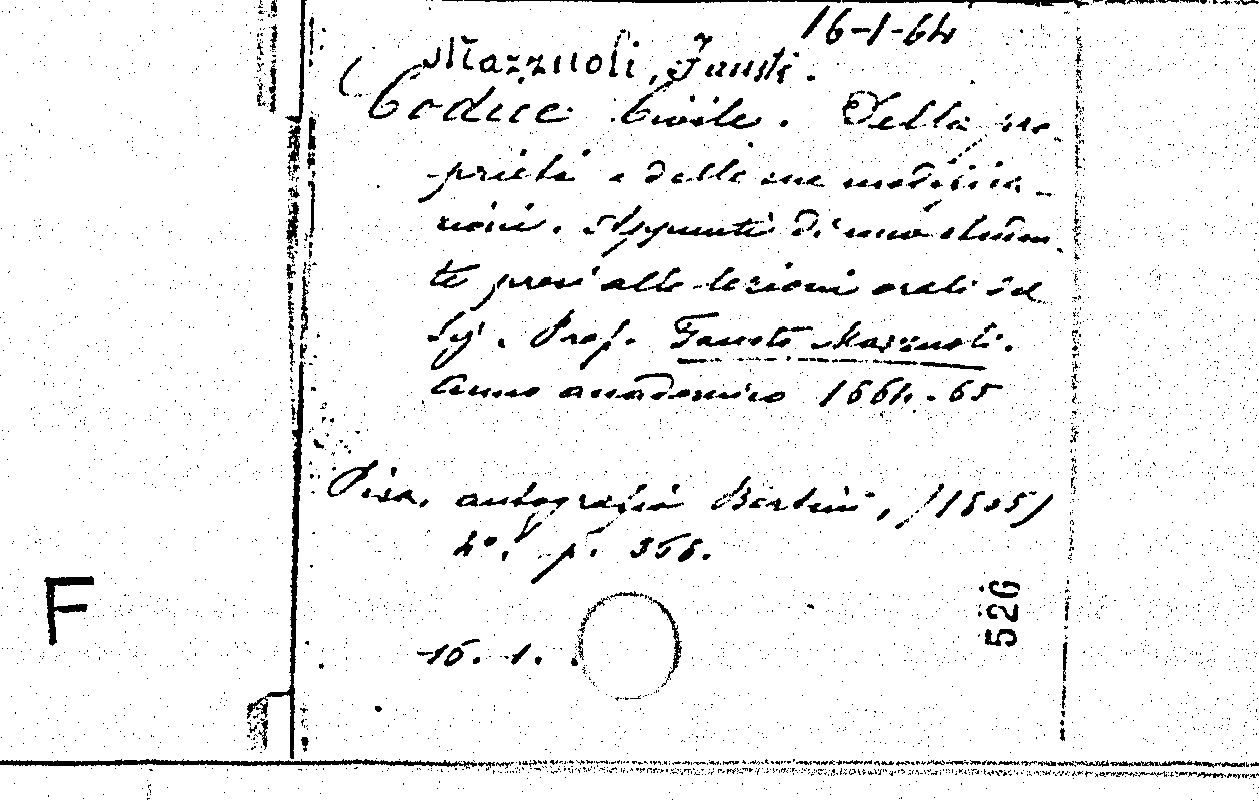 16-1-64
Mazzuoli, Fausto.
Codice Civile. Della pro-
prietà e delle sue modifica-
zioni. Appunti di uno studen-
te presi alle lezioni orali del
Sig. Prof. Fausto Mazzuoli.
Anno accademico 1864-65
Pisa, autografia Bertini, /1865/
4°. p. 368.
16. 1.
526
F